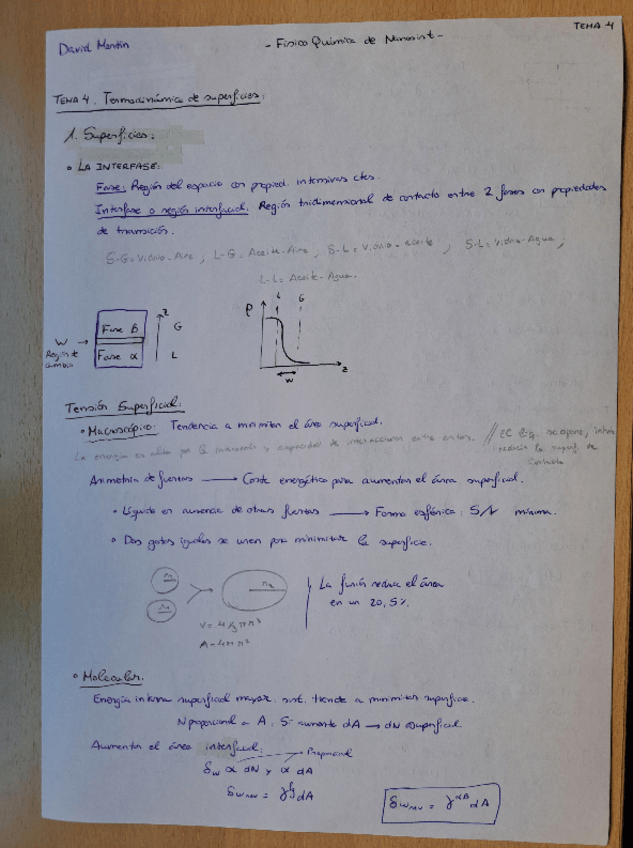 TEMA 4
David Martín
- Físico Química de Nanosist -
TEMA 4. Termodinámica de superficies.
1. Superficies:
• LA INTERFASE:
Fase: Región del espacio con propied. intensivas ctes.
Interfase o región interfacial: Región tridimensional de contacto entre 2 fases con propiedades
de transición.
S-G = Vidrio-Aire, L-G = Aceite-Aire, S-L = Vidrio-aceite, S-L = Vidrio-Agua,
L-L = Aceite-Agua.
Fase β
Fase α
z
G
L
W →
Región de
cambio
ρ
L
G
z
W
Tensión Superficial:
• Macroscópico: Tendencia a minimizar el área superficial.
La energía es alta por la y capacidad de interacciones entre // El líq. se opone,
reducir la superf. de
contacto
Asimetría de fuerzas → Coste energético para aumentar el área superficial.
• Líquido en ausencia de otras fuerzas → Forma esférica: S/V mínima.
• Dos gotas iguales se unen para minimizar la superficie.
r₁
r₁
r₂
V = 4/3 π r³
A = 4π r²
La fusión reduce el área
en un 20,5%.
• Molecular:
Energía interna superficial mayor: sist. tiende a minimizar superficie.
N proporcional a A: Si aumenta dA → dN superficial
Aumentar el área interfacial:
Proporcional
δw α dN y α dA
dA
δw rev = γ^αβ dA